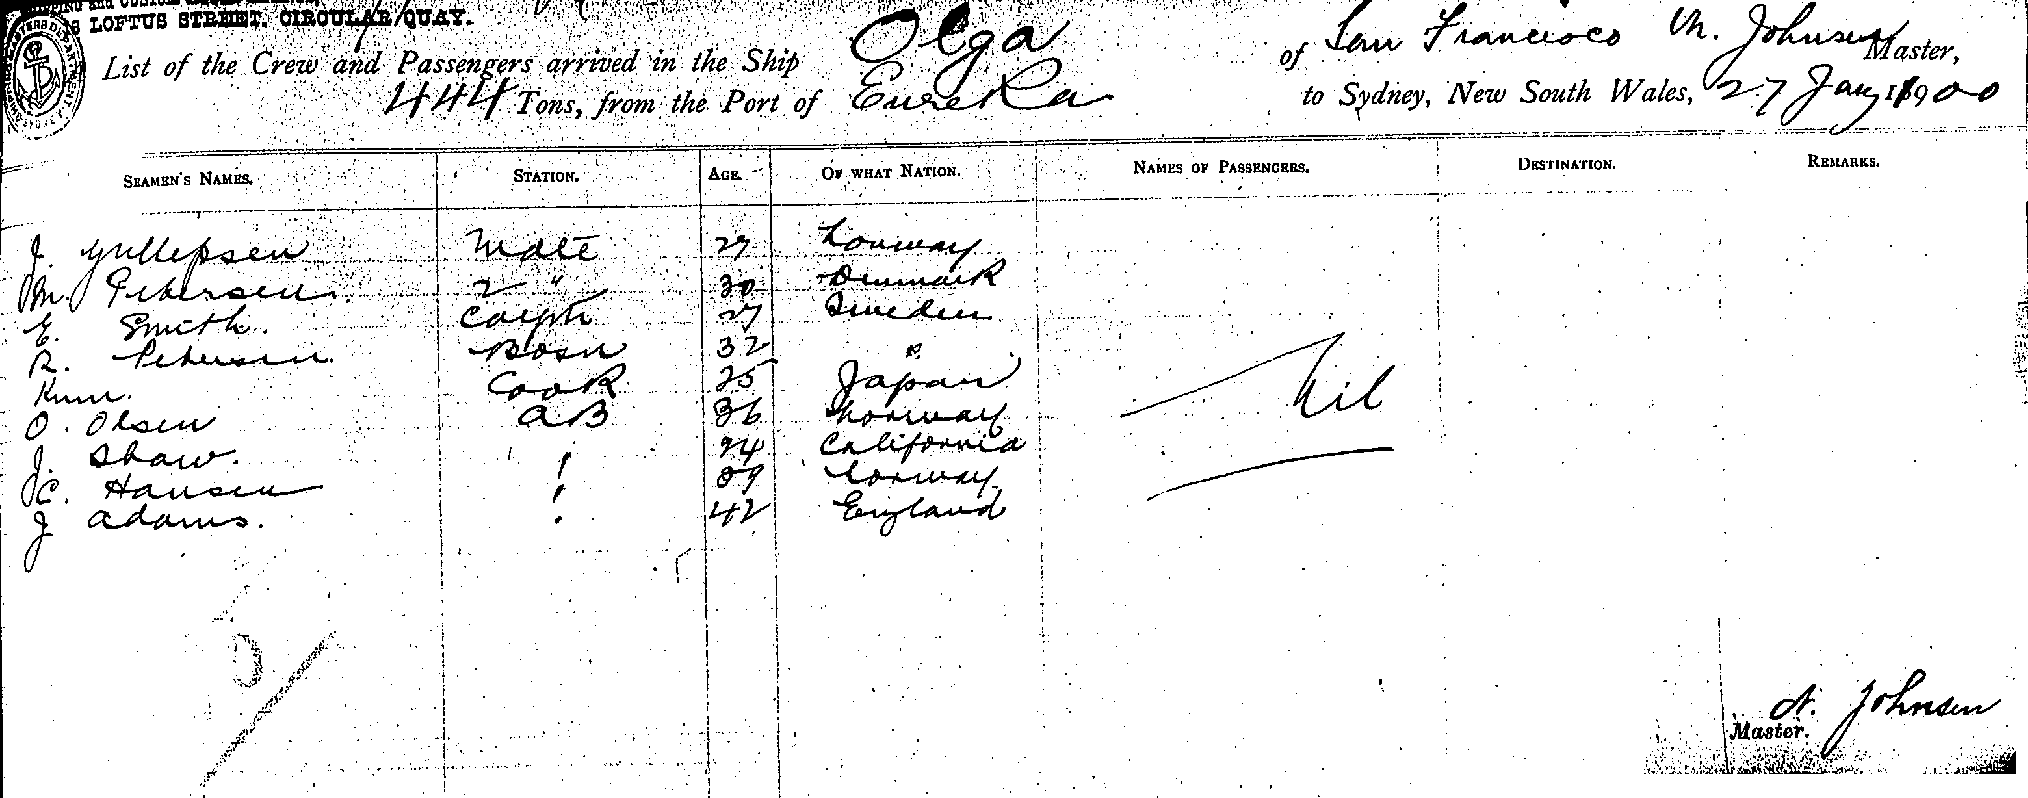 LOFTUS STREET, CIRCULAR QUAY.
List of the Crew and Passengers arrived in the Ship Olga of San Francisco M. Johnsen Master,
444 Tons, from the Port of Eureka to Sydney, New South Wales, 27 Jany 1900
SEAMEN'S NAMES. STATION. AGE. OF WHAT NATION. NAMES OF PASSENGERS. DESTINATION. REMARKS.
J. Mate 27 Norway
M. Petersen 2 " 30 Denmark
E. Smith. 27 Sweden
R. Petersen. Bosn 32 "
Cook 25 Japan Nil
O. Olsen AB 36 Norway
J. Shaw. 24 California
C. Hansen Norway
J Adams. 42 England
Johnsen
Master.